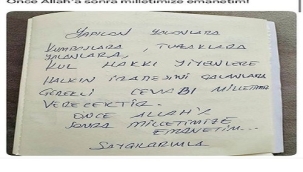 Önce Allah'a sonra milletimize emanetim!
YAPILAN YALANLARA
KUMPASLARA, TUZAKLARA
YALANLARA,
KUL HAKKI YİYENLERE
HALKIN İRADESİNİ ÇALANLARA
GEREKLİ CEVABI MİLLETİMİZ
VERECEKTİR.
ÖNCE ALLAH'A
SONRA MİLLETİMİZE
EMANETİM...
SAYGILARIMLA